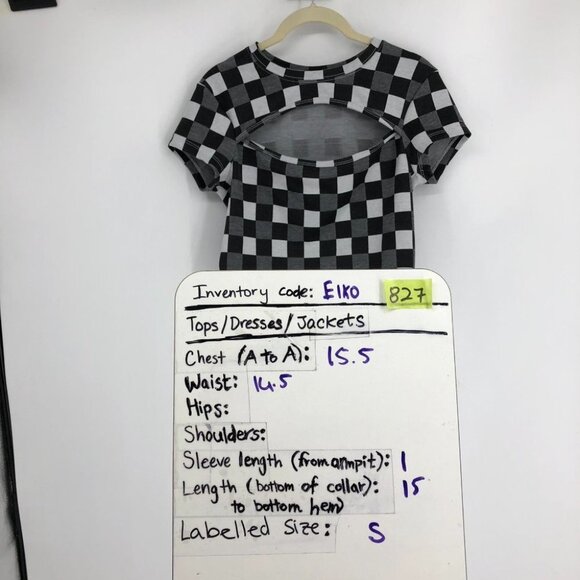 Inventory code: EIKO 827
Tops/Dresses/Jackets
Chest (A to A): 15.5
Waist: 14.5
Hips:
Shoulders:
Sleeve length (from armpit): 1
Length (bottom of collar): 15
to bottom hem)
Labelled Size: S